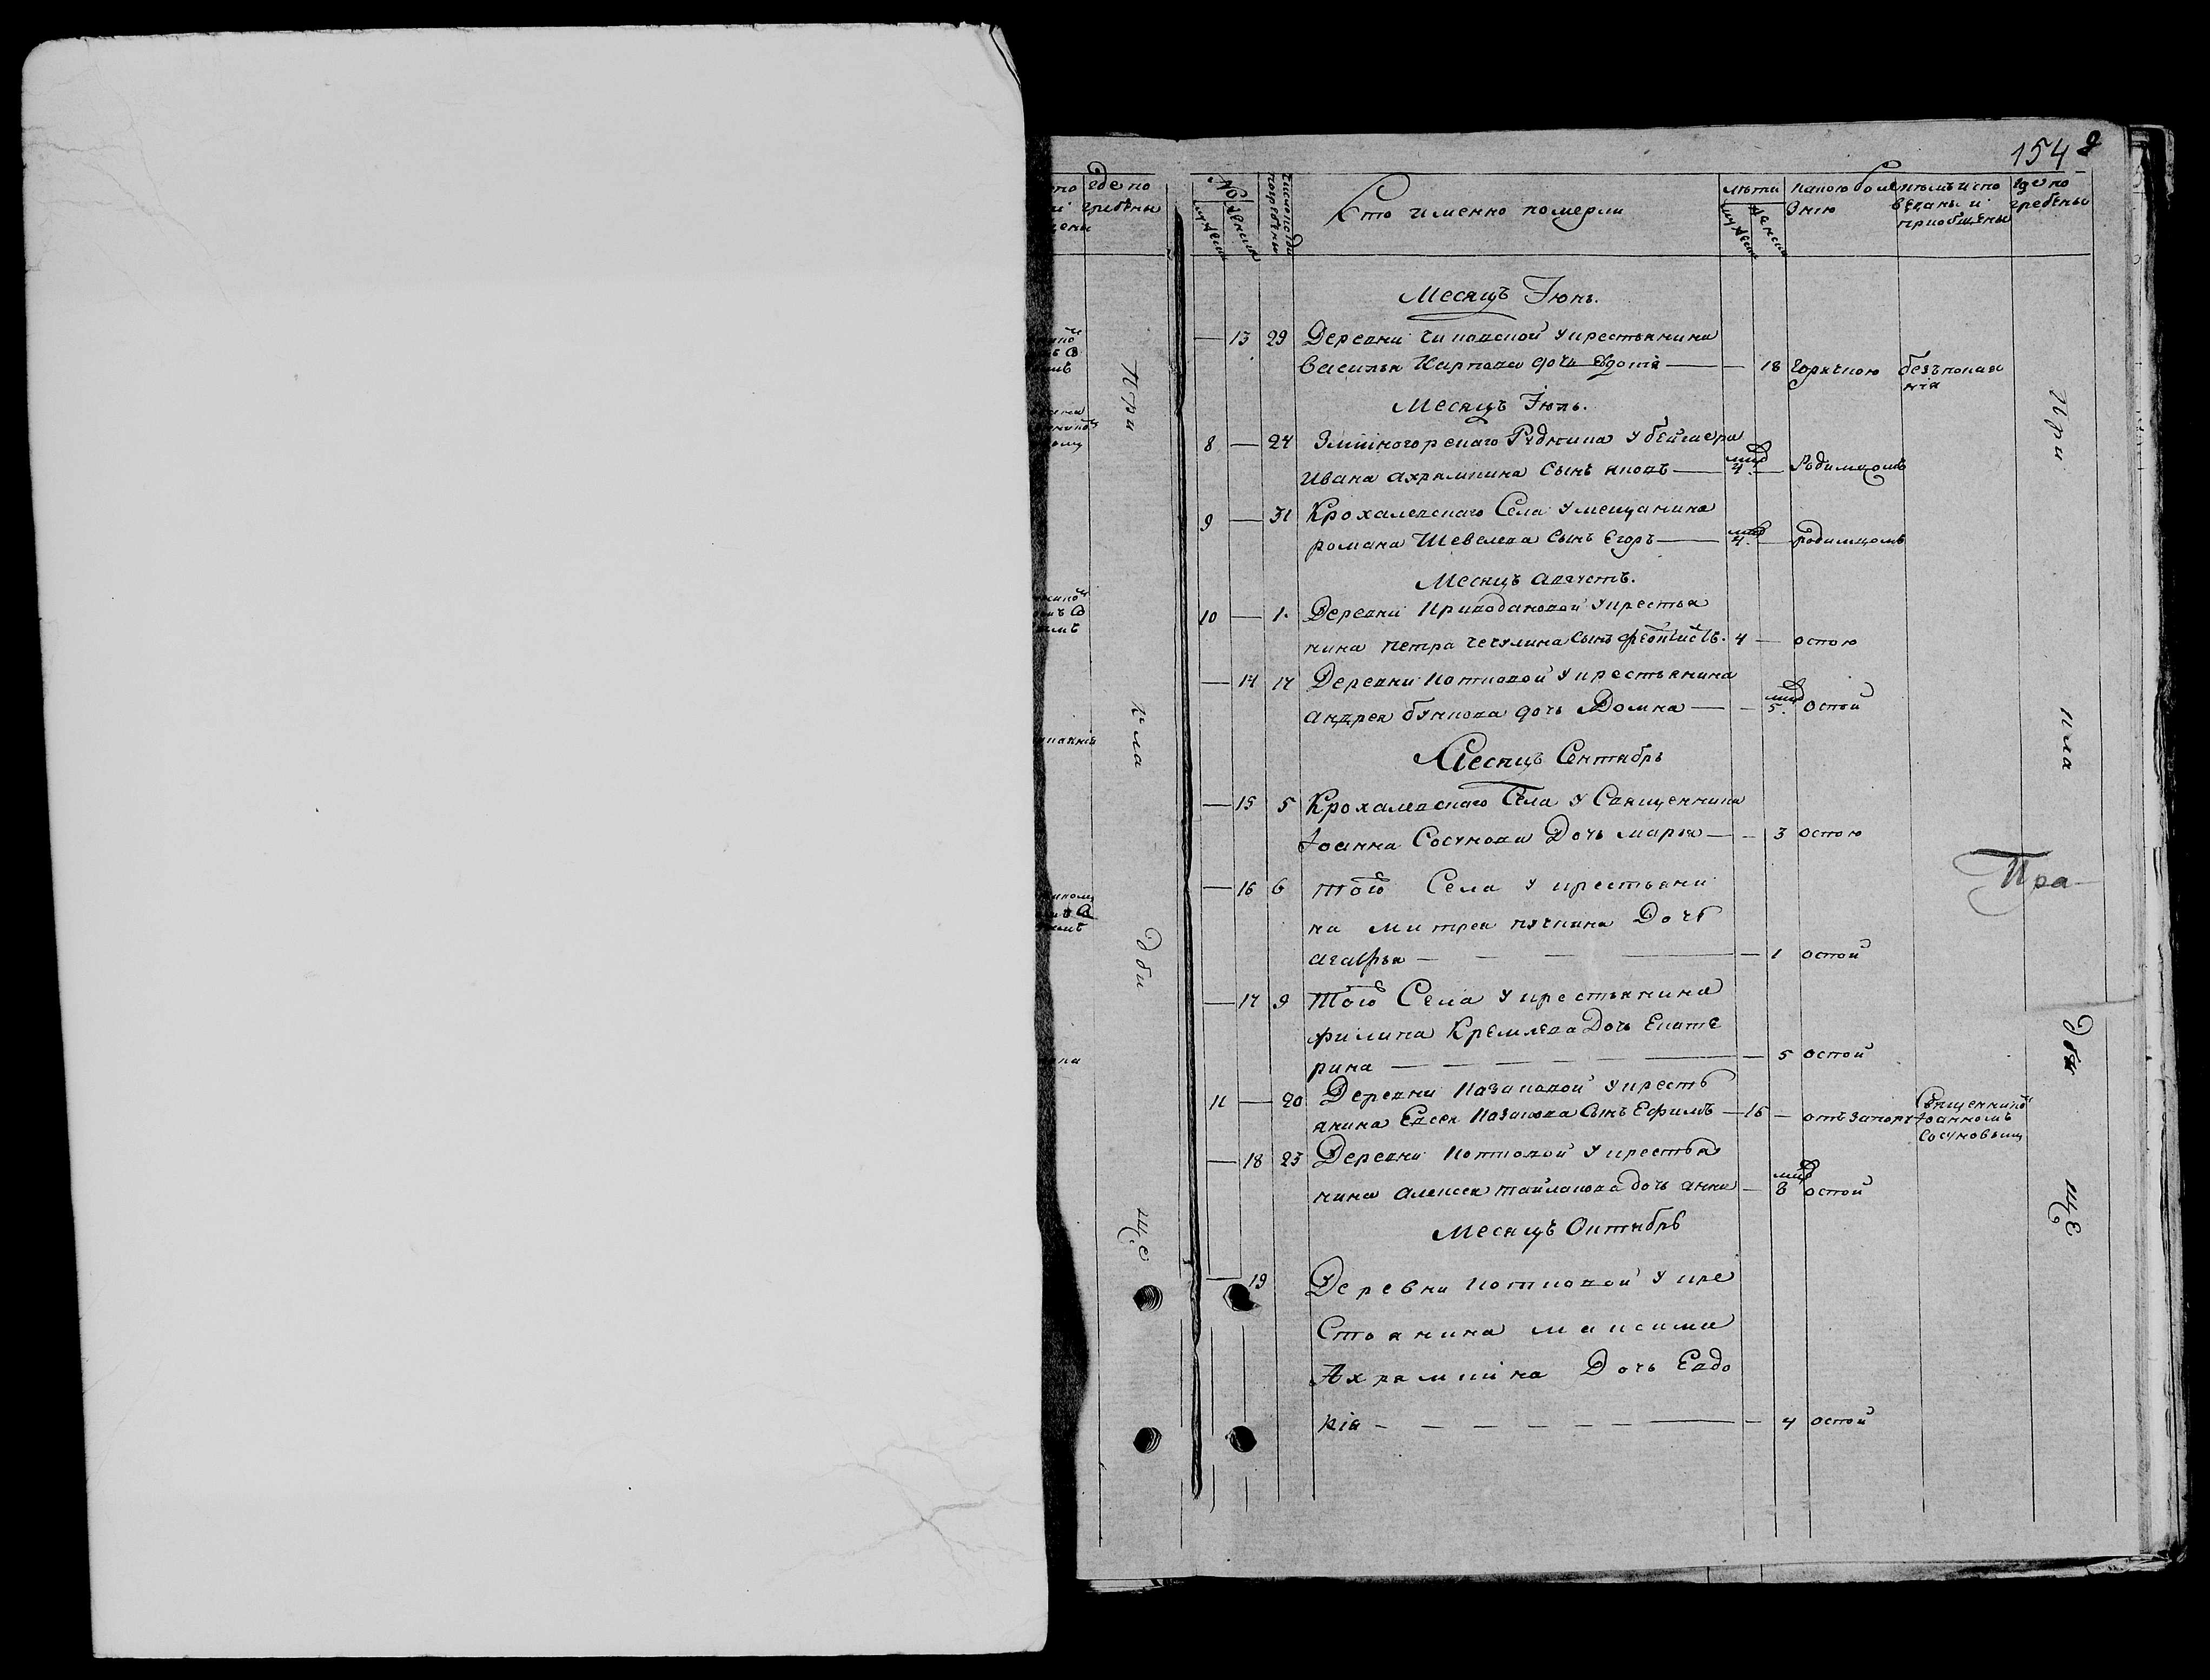 154
№ Число когда погребены Кто именно померли лѣта какою болезнію кемъ испо ведани и приобщены где по гребены
Месяцъ Іюнь.
13 29 Деревни
Василья Карпова дочь 18 горячкою безъ покая
нія
Месяцъ Іюль.
8 24 Змѣиногорскаго Рудника у
Ивана Ахрамкина Сынъ Яковъ 4. Родимцомъ
9 31 Крохалевскаго Села у мещанина
романа Шевелева Сынъ Егоръ 4. родимцомъ
Месяцъ Августъ.
10 1. Деревни у крестья
нина петра Чечулина Сынъ 4 оспою
14 17 Деревни Котковой у крестьянина
андрея бункова дочь Домна 5. оспой
Месяцъ Сентябрь
15 5 Крохалевскаго Села у Священника
Іоанна Сосунова Дочь марья 3 оспою
16 6 того Села у крестьяни
на митрея Дочь
агафья 1 оспой
17 9 того Села у крестьянина
филипа Кремлева Дочь Екате
рина 5 оспой
11 20 Деревни Казаковой у кресть
янина Евсея Казакова Сынъ Ефимъ 16 отъ запору Священникомъ
Іоанномъ
Сосуновымъ
18 23 Деревни Котковой у крестья
нина Алексея тайлакова дочь анна 8 оспой
Месяцъ Октябрь
19 Деревни Котковой у кре
Стоянина максима
Ахрамкина Дочь Евдо
кія 4 оспой
При
кла
дби
ще
Пра